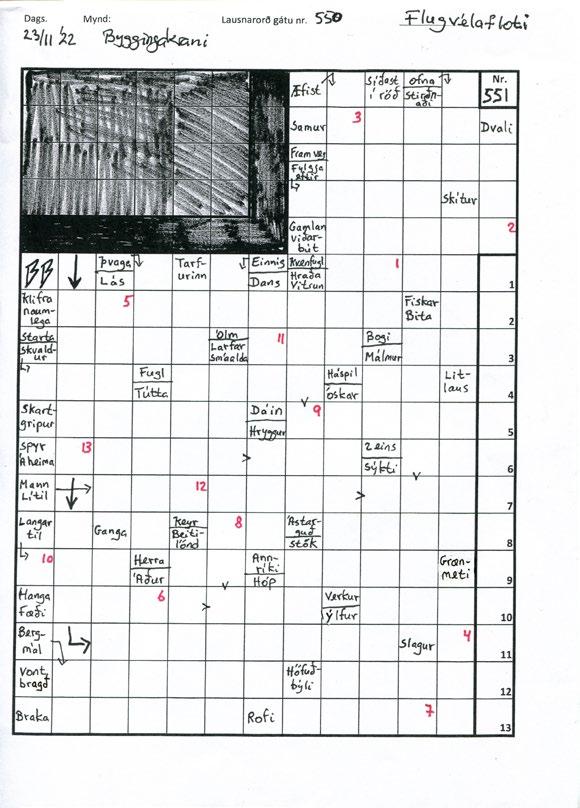 Dags. Mynd: Lausnarorð gátu nr. 550 Flugvélafloti
23/11 '22 Byggingakrani
Æfist Síðast í röð Ofna Stirðn-aði Nr. 551
Samur 3 Dvali
Fram veg
Fylgja eftir
Skítur
Gamlan viðar-bút 2
BB Þvaga Lás Tarf-urinn Einnig Dans Kvenfugl Hraða Vitrun 1 1
Klifra naum-lega 5 Fiskar Bita 2
Starta Skvald-ur Ólm Larfar Smáalda 11 Bogi Málmur 3
Fugl Tútta Háspil Óskar Lit-laus 4
Skart-gripur Dáin Hryggur 9 5
Spyr Áheima 13 2 eins Sýkti 6
Mann Lítil 12 7
Langar til Ganga Keyr Beiti-lönd 8 Ástar-guð Stök 8
10 Herra Áður Ann-ríki Hóp Græn-meti 9
Hanga Fæði 6 Verkur Ýlfur 10
Berg-mál Slagur 4 11
Vont bragð Höfuð-býli 12
Braka Rofi 7 13